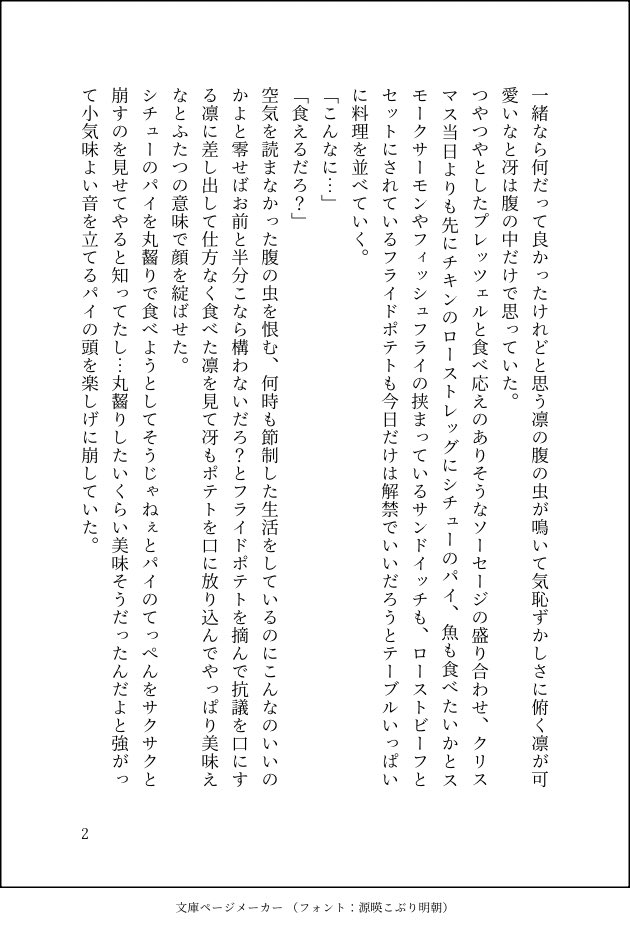 一緒なら何だって良かったけれどと思う凛の腹の虫が鳴いて気恥ずかしさに俯く凛が可
愛いなと冴は腹の中だけで思っていた。
つやつやとしたプレッツェルと食べ応えのありそうなソーセージの盛り合わせ、クリス
マス当日よりも先にチキンのローストレッグにシチューのパイ、魚も食べたいかとス
モークサーモンやフィッシュフライの挟まっているサンドイッチも、ローストビーフと
セットにされているフライドポテトも今日だけは解禁でいいだろうとテーブルいっぱい
に料理を並べていく。
「こんなに…」
「食えるだろ？」
空気を読まなかった腹の虫を恨む、何時も節制した生活をしているのにこんなのいいの
かよと零せばお前と半分こなら構わないだろ？とフライドポテトを摘んで抗議を口にす
る凛に差し出して仕方なく食べた凛を見て冴もポテトを口に放り込んでやっぱり美味え
なとふたつの意味で顔を綻ばせた。
シチューのパイを丸齧りで食べようとしてそうじゃねぇとパイのてっぺんをサクサクと
崩すのを見せてやると知ってたし…丸齧りしたいくらい美味そうだったんだよと強がっ
て小気味よい音を立てるパイの頭を楽しげに崩していた。
2
文庫ページメーカー（フォント：源暎こぶり明朝）